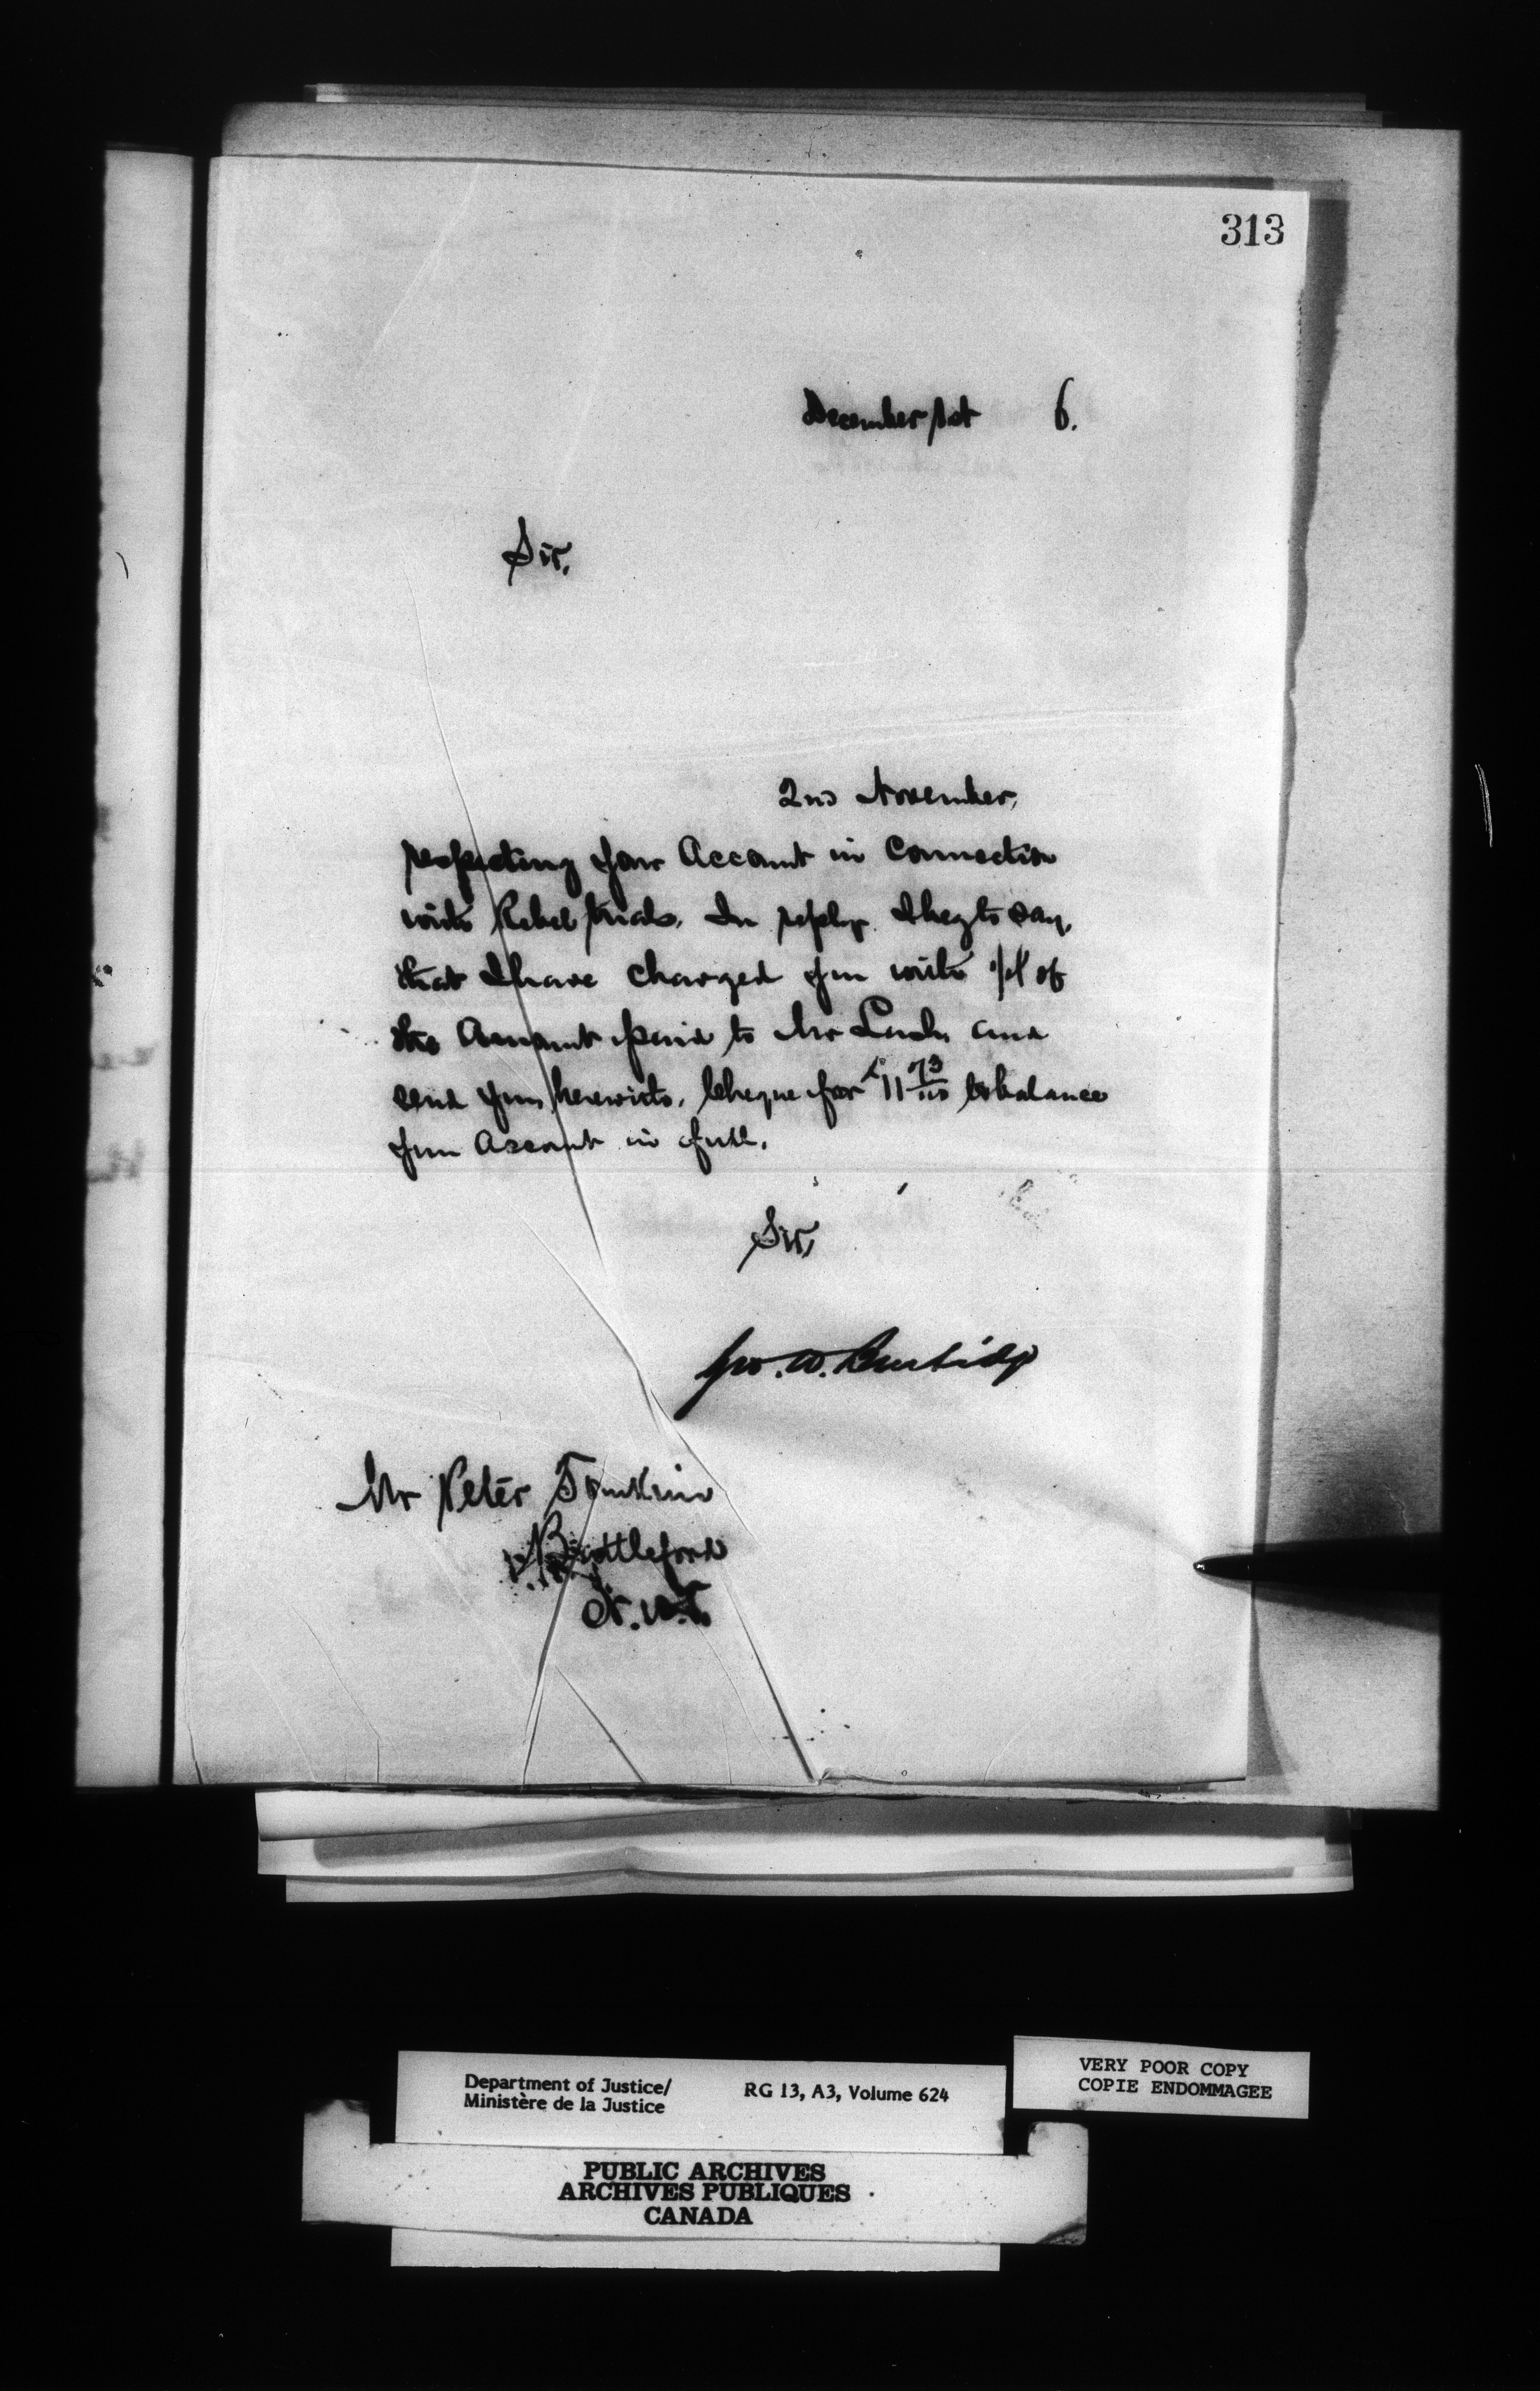 313
December 1st 6.
Sir,
2nd November,
respecting your Account in Connection
with Rebel trials. In reply I beg to say,
that I have charged you with of
the Amount paid to Mr and
send you herewith, Cheque for $11 73/100 to balance
your Account in full.
Sir,
Geo. W. Burbidge
Mr Peter Tomkins
Battleford
N.W.T.
Department of Justice/ RG 13, A3, Volume 624
Ministère de la Justice
VERY POOR COPY
COPIE ENDOMMAGEE
PUBLIC ARCHIVES
ARCHIVES PUBLIQUES
CANADA